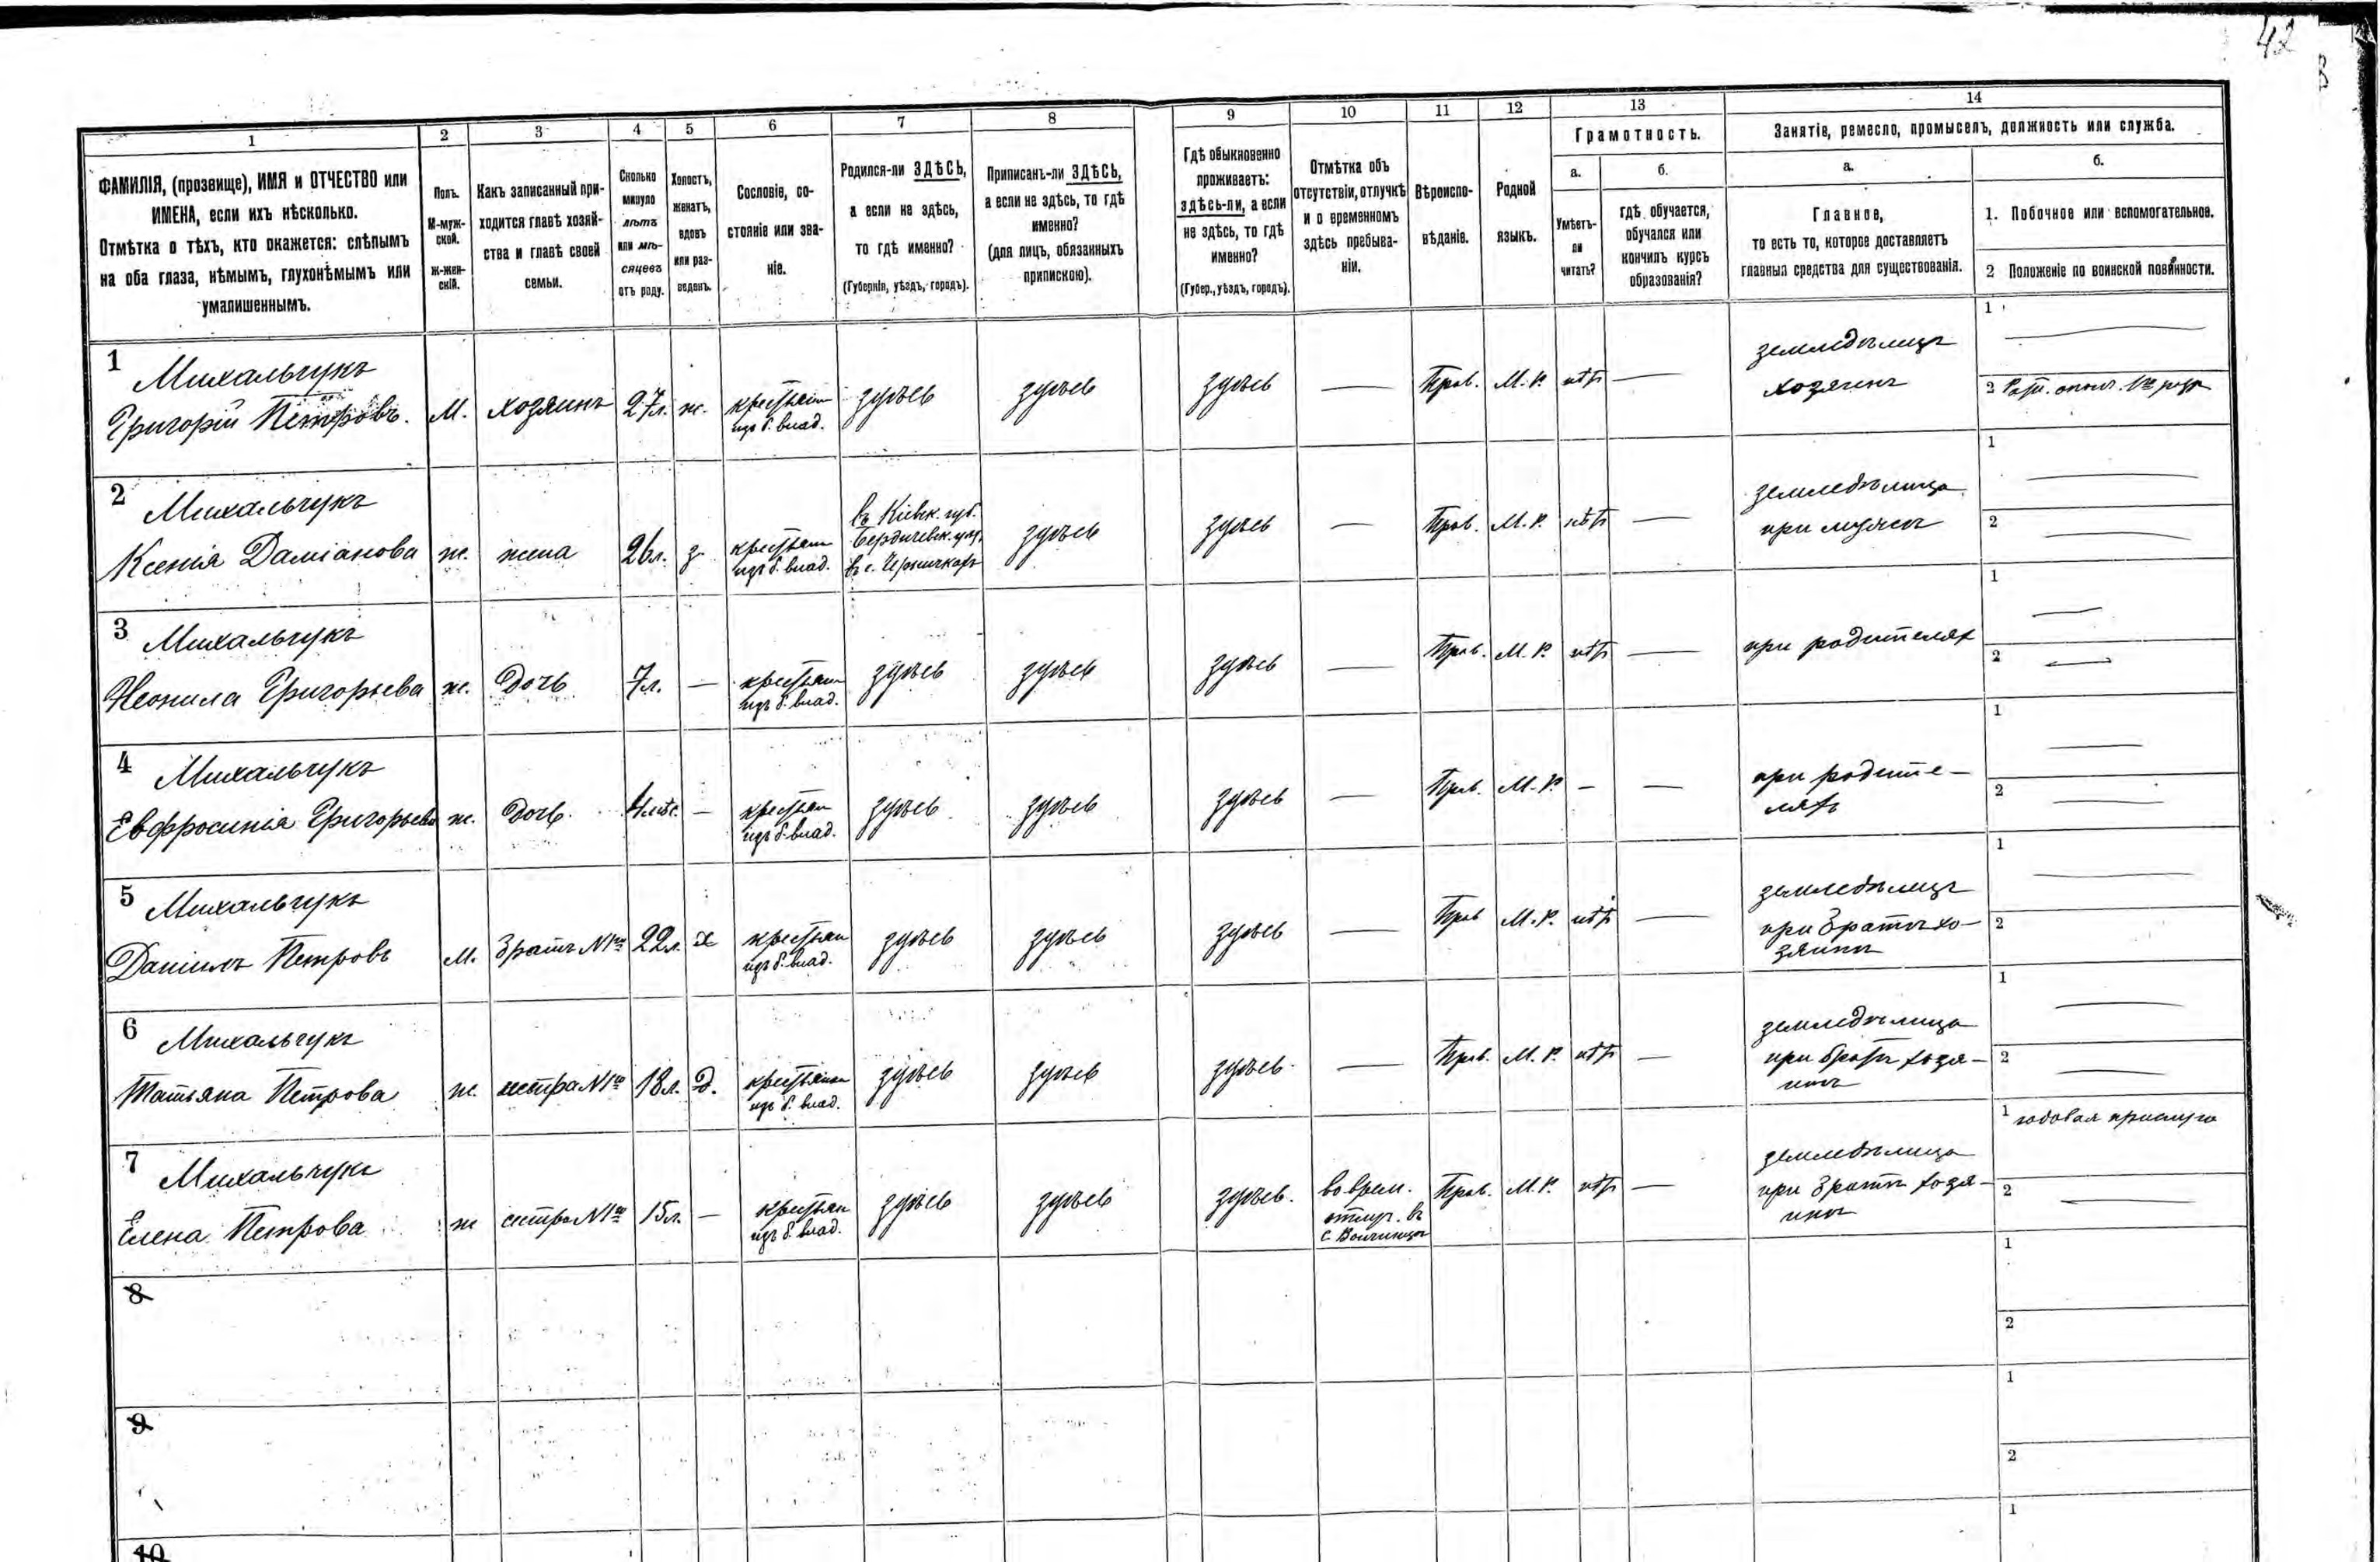 42
1
2
3
4
5
6
7
8
9
10
11
12
13
14
ФАМИЛІЯ, (прозвище), ИМЯ и ОТЧЕСТВО или
ИМЕНА, если ихъ нѣсколько.
Отмѣтка о тѣхъ, кто окажется: слѣпымъ
на оба глаза, нѣмымъ, глухонѣмымъ или
умалишеннымъ.
Полъ.
М-муж-
ской.
Ж-жен-
скій.
Какъ записанный при-
ходится главѣ хозяй-
ства и главѣ своей
семьи.
Сколько
минуло
лѣтъ
или мѣ-
сяцевъ
отъ роду.
Холостъ,
женатъ,
вдовъ
или раз-
веденъ.
Сословіе, со-
стояніе или зва-
ніе.
Родился-ли ЗДѢСЬ,
а если не здѣсь,
то гдѣ именно?
(Губернія, уѣздъ, городъ).
Приписанъ-ли ЗДѢСЬ,
а если не здѣсь, то гдѣ
именно?
(для лицъ, обязанныхъ
припискою).
Гдѣ обыкновенно
проживаетъ:
здѣсь-ли, а если
не здѣсь, то гдѣ
именно?
(Губер., уѣздъ, городъ).
Отмѣтка объ
отсутствіи, отлучкѣ
и о временномъ
здѣсь пребыва-
ніи.
Вѣроиспо-
вѣданіе.
Родной
языкъ.
Грамотность.
а.
Умѣетъ-
ли
читать?
б.
гдѣ обучается,
обучался или
кончилъ курсъ
образованія?
Занятіе, ремесло, промыселъ, должность или служба.
а.
Главное,
то есть то, которое доставляетъ
главныя средства для существованія.
б.
1. Побочное или вспомогательное.
2 Положеніе по воинской повинности.
1 Михальчукъ
Григорій Петровъ.
М. хозяинъ 27л. ж.
крестьян
изъ б. влад.
здѣсь здѣсь здѣсь — Прав. М.Р. нѣтъ —
земледѣлецъ
хозяинъ
1 —
2
2 Михальчукъ
Ксенія Даміанова
ж. жена 26л. з
крестьян
изъ б. влад.
въ Кіевск. губ.
Бердичевск. уѣз.
въ с.
здѣсь здѣсь — Прав. М.Р. нѣтъ —
земледѣлица
при мужѣ
1 —
2 —
3 Михальчукъ
Неонила Григорьева
ж. Дочь 7л. —
крестьян
изъ б. влад.
здѣсь здѣсь здѣсь — Прав. М.Р. нѣтъ —
при родителях
1 —
2 —
4 Михальчукъ
Евфросинія Григорьева
ж. Дочь. 4 мѣс. —
крестьян
изъ б. влад.
здѣсь здѣсь здѣсь — Прав. М.Р. — —
при родите-
ляхъ
1 —
2 —
5 Михальчукъ
Даніилъ Петровъ
М. Братъ N1го 22л. х
крестьян
изъ б. влад.
здѣсь здѣсь здѣсь — Прав М.Р. нѣтъ —
земледѣлецъ
при Братѣ хо-
зяинѣ
1 —
2
6 Михальчукъ
Татьяна Петрова
ж. сестра N1го 18л. Д.
крестьянк
изъ б. влад.
здѣсь здѣсь здѣсь — Прав. М.Р. нѣтъ —
земледѣлица
при братѣ хозя-
инѣ
1 —
2 —
7 Михальчукъ
Елена Петрова
ж сестра N1го 15л. —
крестьян
изъ б. влад.
здѣсь здѣсь здѣсь.
во врем.
отлуч. въ
с.
Прав. М.Р. нѣтъ —
земледѣлица
при Братѣ хозя-
инѣ
1 годовая прислуга
2 —
8
1
2
9
1
2
10
1